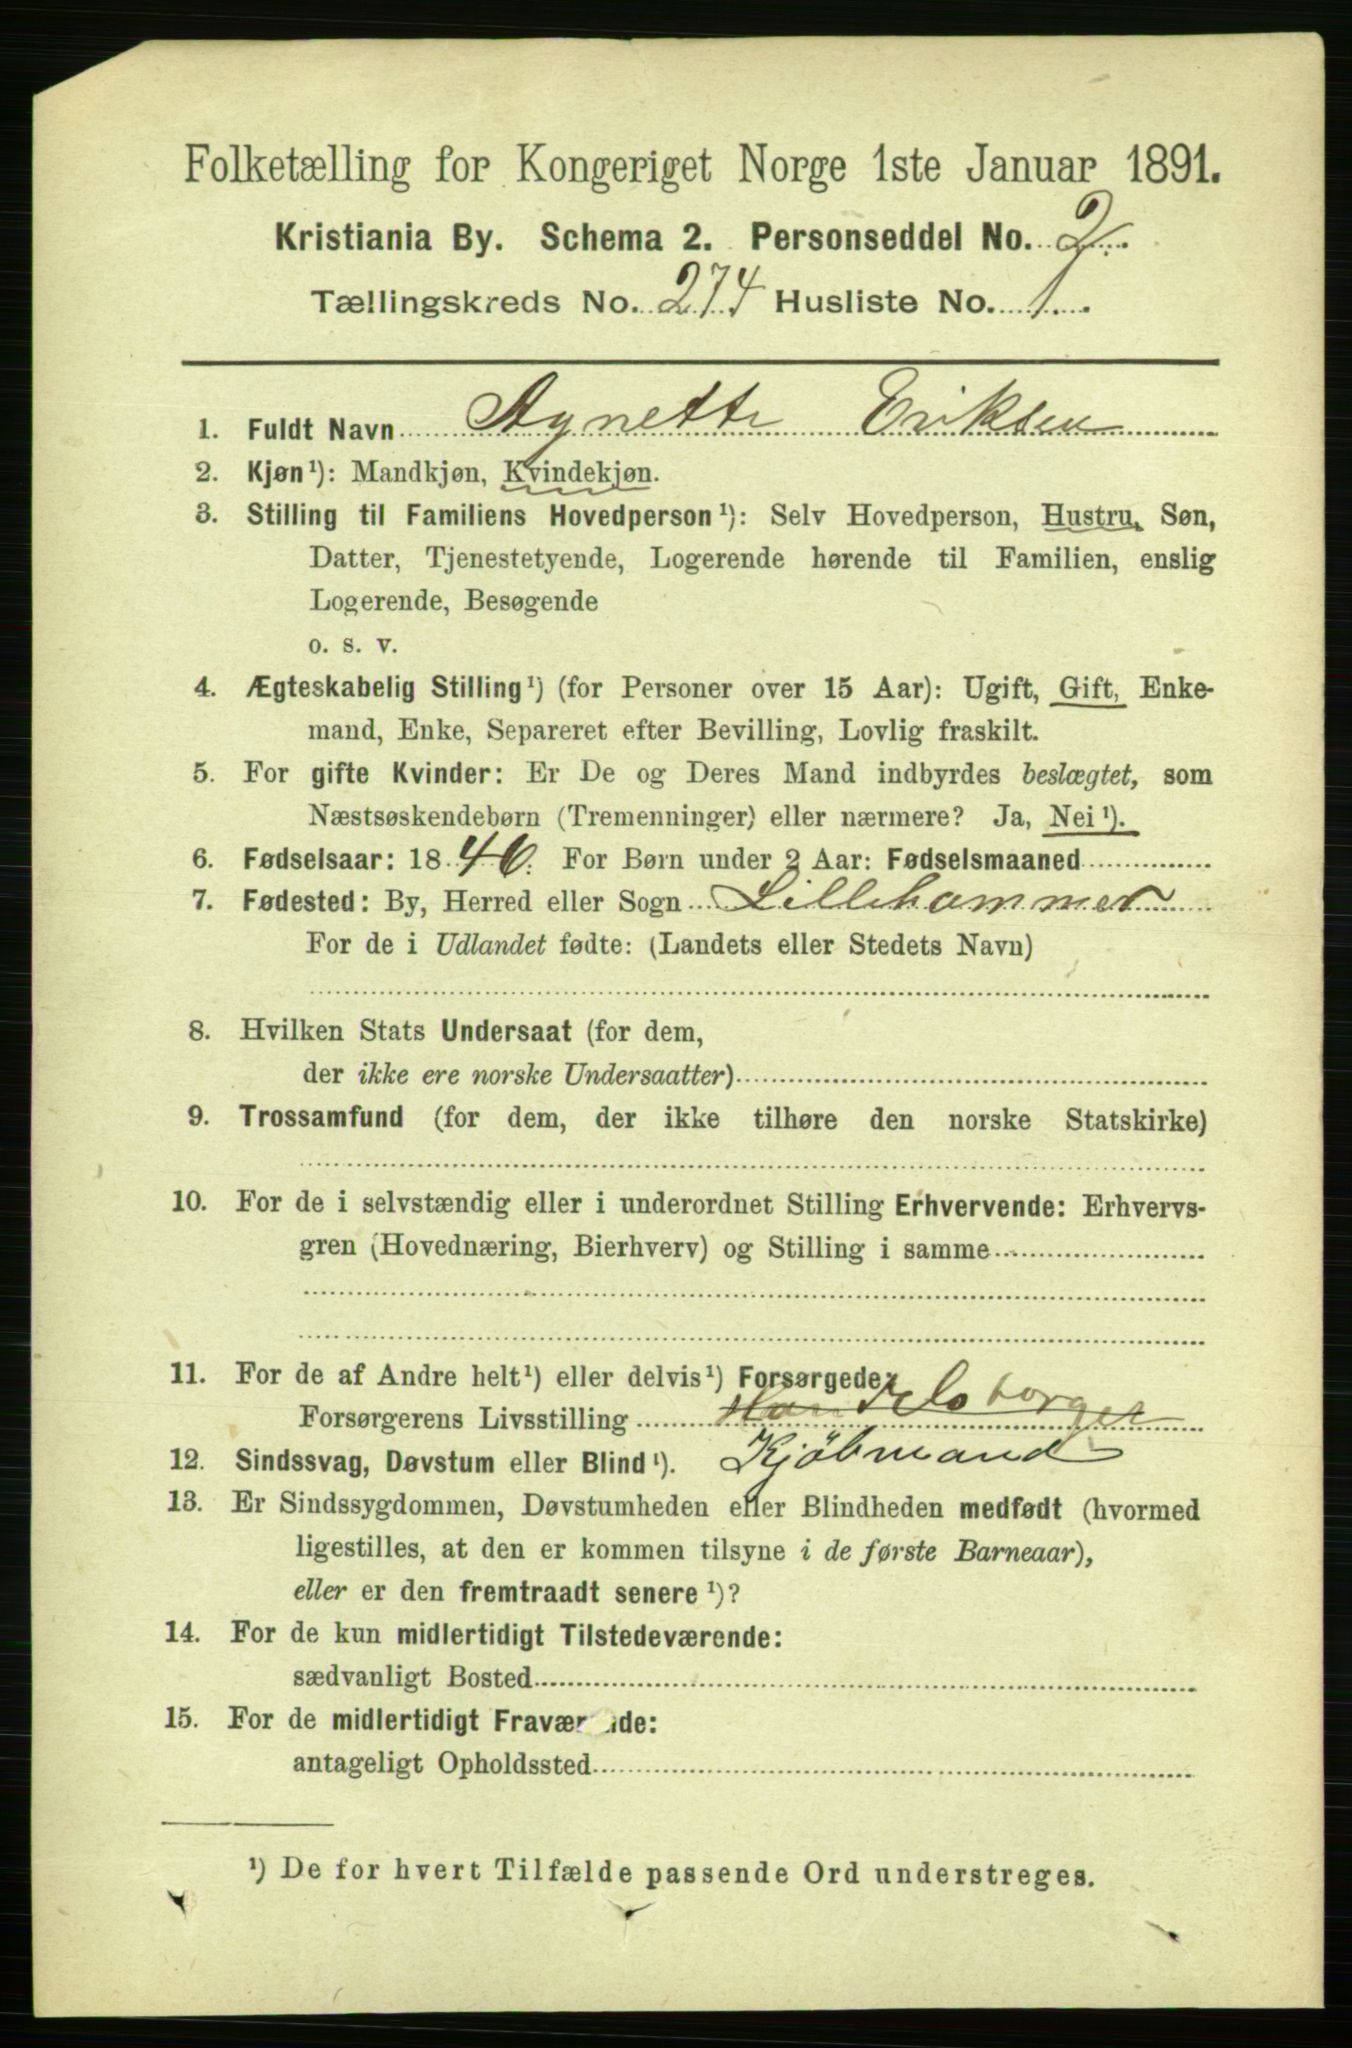 Folketælling for Kongeriget Norge 1ste Januar 1891.
Kristiania By. Schema 2. Personseddel No. 2.
Tællingskreds No. 274 Husliste No. 1.
1. Fuldt Navn Agnette Eriksen
2. Kjøn¹): Mandkjøn, Kvindekjøn.
3. Stilling til Familiens Hovedperson¹): Selv Hovedperson, Hustru, Søn,
Datter, Tjenestetyende, Logerende hørende til Familien, enslig
Logerende, Besøgende
o. s. v.
4. Ægteskabelig Stilling¹) (for Personer over 15 Aar): Ugift, Gift, Enke-
mand, Enke, Separeret efter Bevilling, Lovlig fraskilt.
5. For gifte Kvinder: Er De og Deres Mand indbyrdes beslægtet, som
Næstsøskendebørn (Tremenninger) eller nærmere? Ja, Nei¹).
6. Fødselsaar: 1846. For Børn under 2 Aar: Fødselsmaaned
7. Fødested: By, Herred eller Sogn Lillehammer
For de i Udlandet fødte: (Landets eller Stedets Navn)
8. Hvilken Stats Undersaat (for dem,
der ikke ere norske Undersaatter)
9. Trossamfund (for dem, der ikke tilhøre den norske Statskirke)
10. For de i selvstændig eller i underordnet Stilling Erhvervende: Erhvervs-
gren (Hovednæring, Bierhverv) og Stilling i samme
11. For de af Andre helt¹) eller delvis¹) Forsørgede,
Forsørgerens Livsstilling Handelsborger
12. Sindssvag, Døvstum eller Blind¹). Kjöbmand
13. Er Sindssygdommen, Døvstumheden eller Blindheden medfødt (hvormed
ligestilles, at den er kommen tilsyne i de første Barneaar),
eller er den fremtraadt senere¹)?
14. For de kun midlertidigt Tilstedeværende:
sædvanligt Bosted
15. For de midlertidigt Fraværende:
antageligt Opholdssted
¹) De for hvert Tilfælde passende Ord understreges.